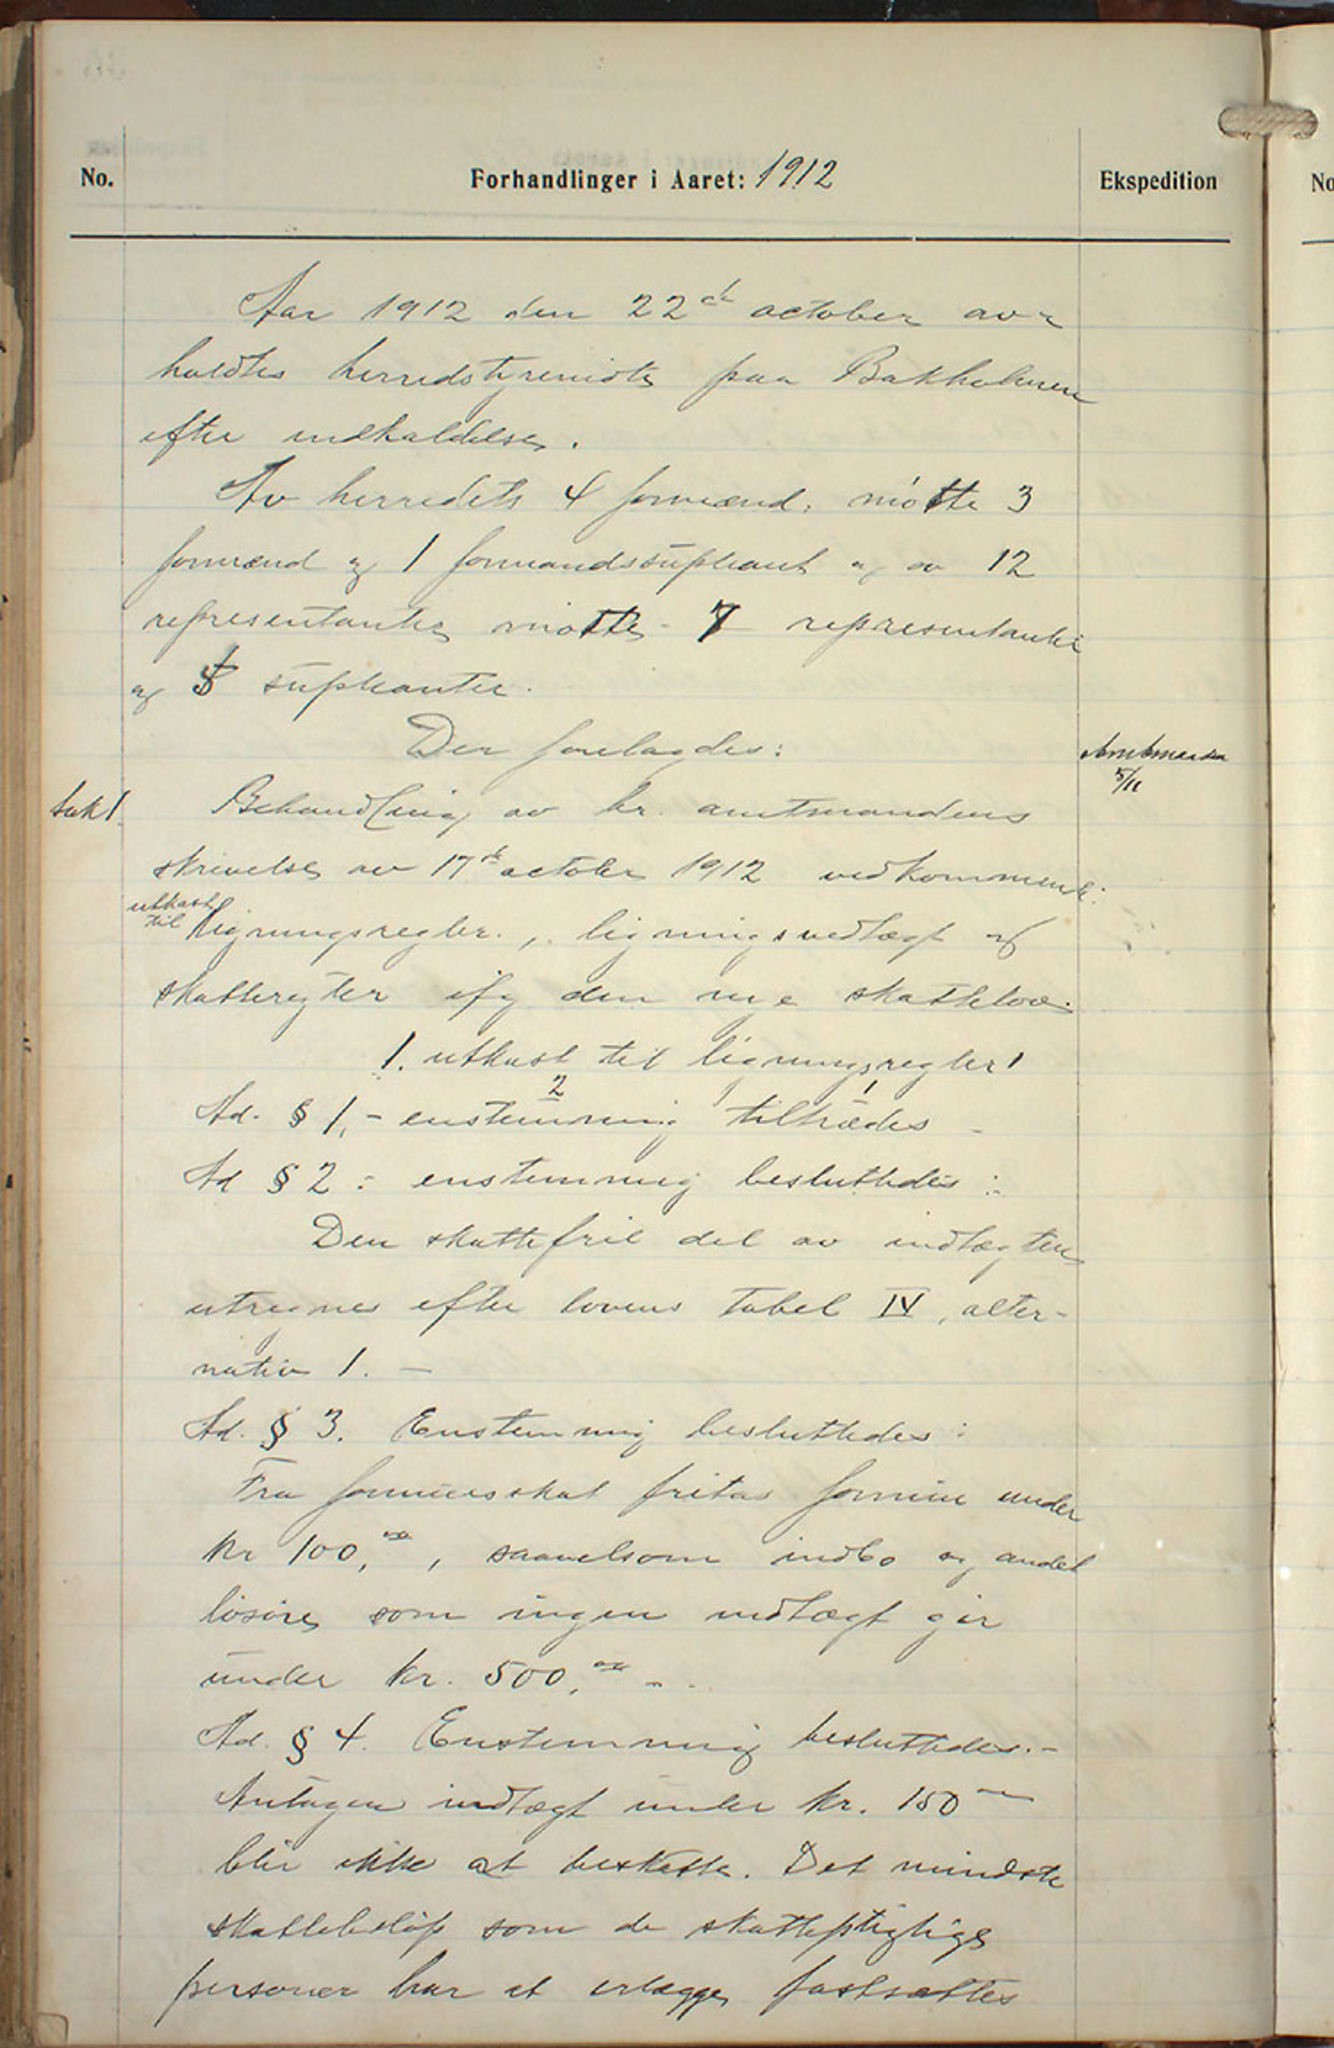 No.
Forhandlinger i Aaret: 1912
Ekspedition
No
Aar 1912 den 22de october av-
holdtes herredstyremøte paa Bakholmen
efter indkaldelse.
Av herredets 4 formænd, møtte 3
formænd og 1 formandssupleant og av 12
representanter møtte 7 representanter
og supleanter.
Der forelagdes:
Amtmanden
5/11
Sak 1.
Behandling av hr. amtmandens
skrivelse av 17de octobr 1912 vedkommende:
utkast
til
ligningsregler, ligningsvedtægt og
skatteregler ifg den nye skattelov.
1. utkast til ligningsregler
2
Ad. § 1, - enstemmig tiltrædes -
Ad § 2: enstemmig besluttedes:
Den skattefrie del av indtægten
utregnes efter lovens tabel IV, alter-
nativ 1. -
Ad. § 3. Enstemmig besluttedes:
Fra formuesskat fritas formue under
kr 100,00, saavelsom indbo og andet
løsøre som ingen indtægt gir
under kr. 500,00 -
Ad. § 4. Enstemmig besluttedes. -
Antagen indtægt under kr. 150
blir ikke at beskatte. Det mindste
skattebeløp som de skattepligtige
personer har at erlægge fastsættes